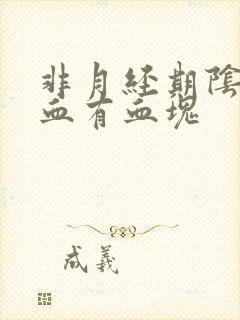 非月经期陰
血有血塊
成義